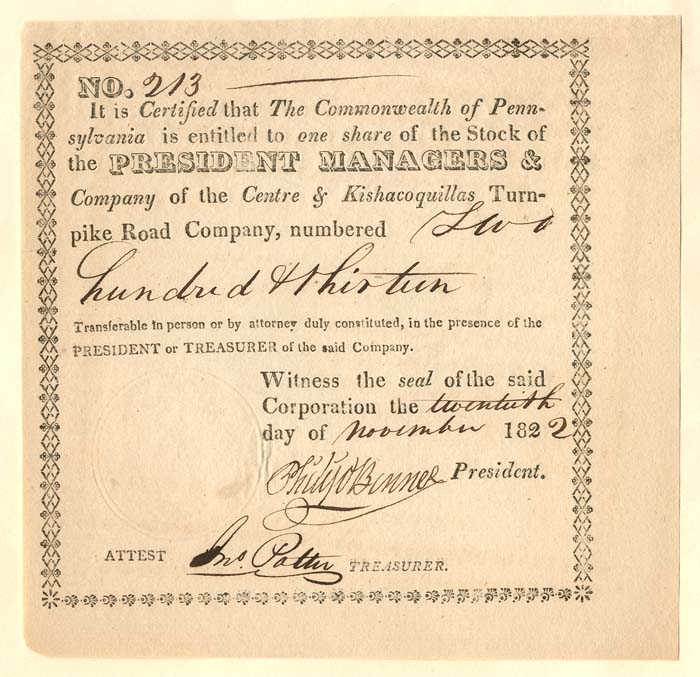 NO. 213
It is Certified that The Commonwealth of Penn-
sylvania is entitled to one share of the Stock of
the PRESIDENT MANAGERS &
Company of the Centre & Kishacoquillas Turn-
pike Road Company, numbered Two
hundred & thirteen
Transferable in person or by attorney duly constituted, in the presence of the
PRESIDENT or TREASURER of the said Company.
Witness the seal of the said
Corporation the twentieth
day of November 1822
Philip Benner President.
ATTEST Jno. Potter TREASURER.